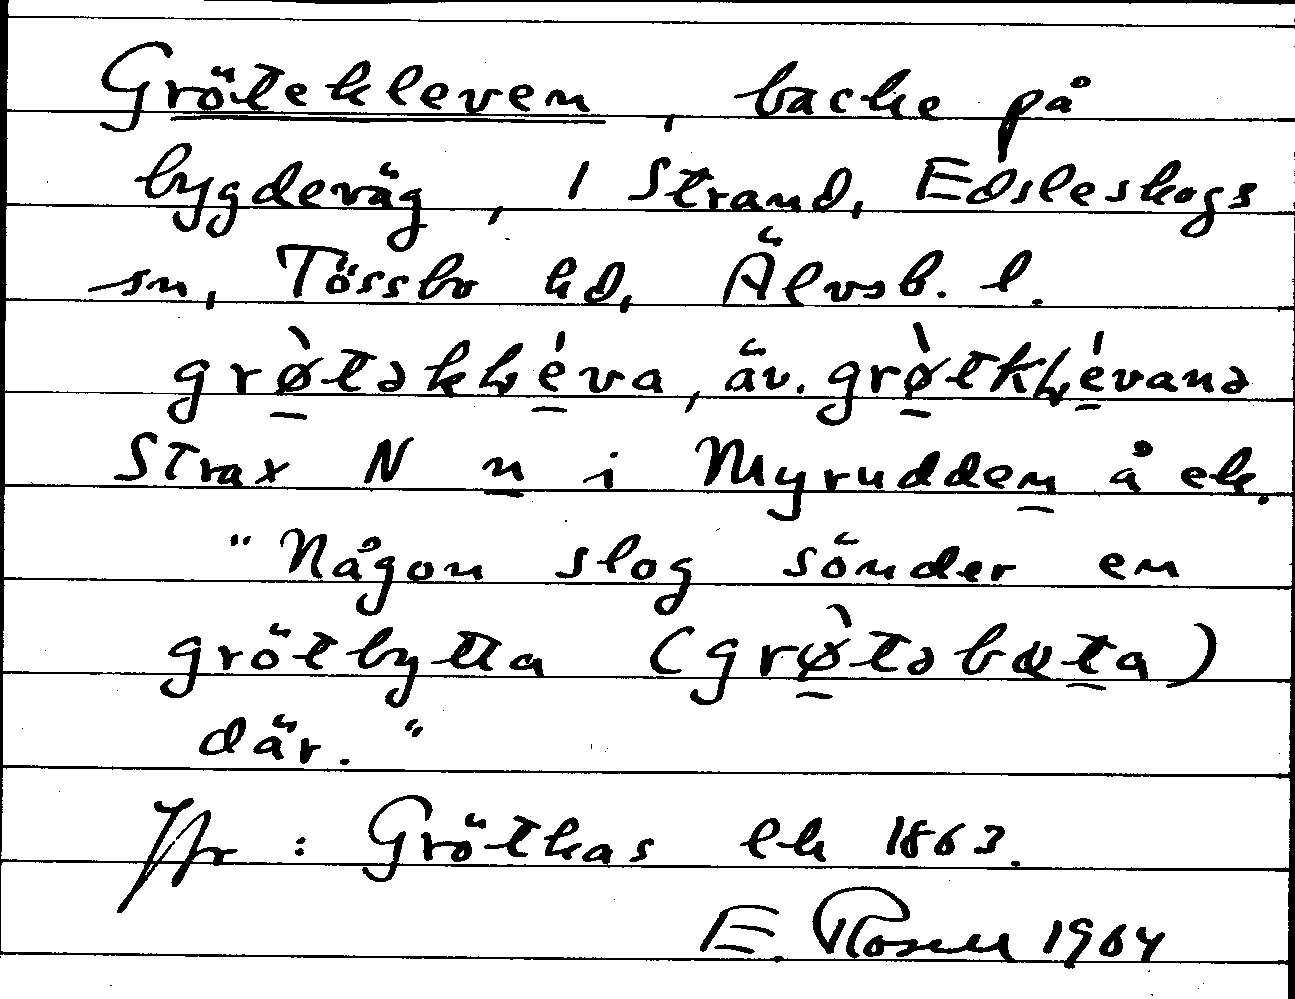 Grötekleven, backe på
bygdeväg, 1 Strand, Edsleskogs
sn, Tössbo hd, Älvsb. l.
grø̀təkɫéva, äv. grø̀tkɫévanə
Strax N n i Myrudden å ek.
"Någon slog sönder en
grötbytta (grø̀təbøta)
där."
Jfr : Grötkas ek 1863.
E. Rosell 1964